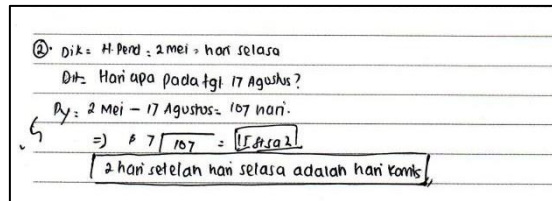 ②. Dik = H. Pend : 2 mei = hari selasa
Dit = Hari apa pada tgl 17 Agustus?
Dy : 2 Mei - 17 Agustus = 107 hari.
=) 7 107 = 15 sisa 2
2 hari setelah hari selasa adalah hari kamis